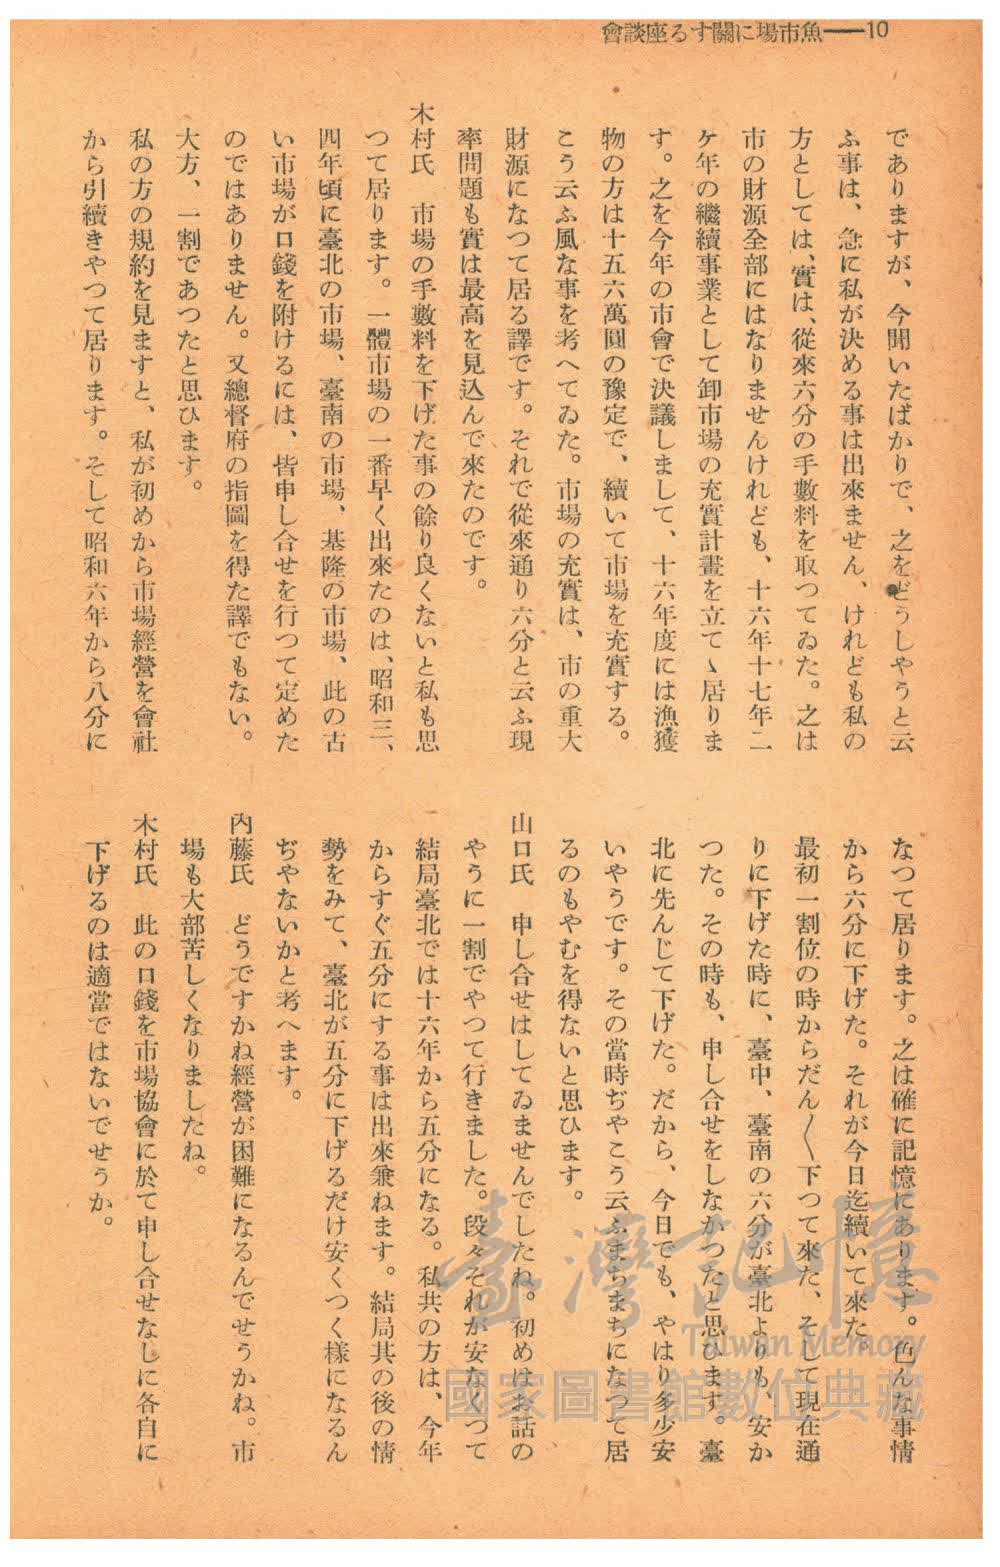 10——魚市場に關する座談會
でありますが、今聞いたばかりで、之をどうしやうと云
ふ事は、急に私が決める事は出來ません、けれども私の
方としては、實は、從來六分の手數料を取つてゐた。之は
市の財源全部にはなりませんけれども、十六年十七年二
ケ年の繼續事業として卸市場の充實計畫を立てゝ居りま
す。之を今年の市會で決議しまして、十六年度には漁獲
物の方は十五六萬圓の豫定で、續いて市場を充實する。
こう云ふ風な事を考へてゐた。市場の充實は、市の重大
財源になつて居る譯です。それで從來通り六分と云ふ現
率問題も實は最高を見込んで來たのです。
木村氏　市場の手數料を下げた事の餘り良くないと私も思
つて居ります。一體市場の一番早く出來たのは、昭和三、
四年頃に臺北の市場、臺南の市場、基隆の市場、此の古
い市場が口錢を附けるには、皆申し合せを行つて定めた
のではありません。又總督府の指圖を得た譯でもない。
大方、一割であつたと思ひます。
私の方の規約を見ますと、私が初めから市場經營を會社
から引續きやつて居ります。そして昭和六年から八分に
なつて居ります。之は確に記憶にあります。色んな事情
から六分に下げた。それが今日迄續いて來た。
最初一割位の時からだん〳〵下つて來た、そして現在通
りに下げた時に、臺中、臺南の六分が臺北よりも、安か
つた。その時も、申し合せをしなかつたと思ひます。臺
北に先んじて下げた。だから、今日でも、やはり多少安
いやうです。その當時ぢやこう云ふまちまちになつて居
るのもやむを得ないと思ひます。
山口氏　申し合せはしてゐませんでしたね。初めはお話の
やうに一割でやつて行きました。段々それが安なくつて
結局臺北では十六年から五分になる。私共の方は、今年
からすぐ五分にする事は出來兼ねます。結局其の後の情
勢をみて、臺北が五分に下げるだけ安くつく樣になるん
ぢやないかと考へます。
內藤氏　どうですかね經營が困難になるんでせうかね。市
場も大部苦しくなりましたね。
木村氏　此の口錢を市場協會に於て申し合せなしに各自に
下げるのは適當ではないでせうか。
臺灣記憶
Taiwan Memory
國家圖書館數位典藏